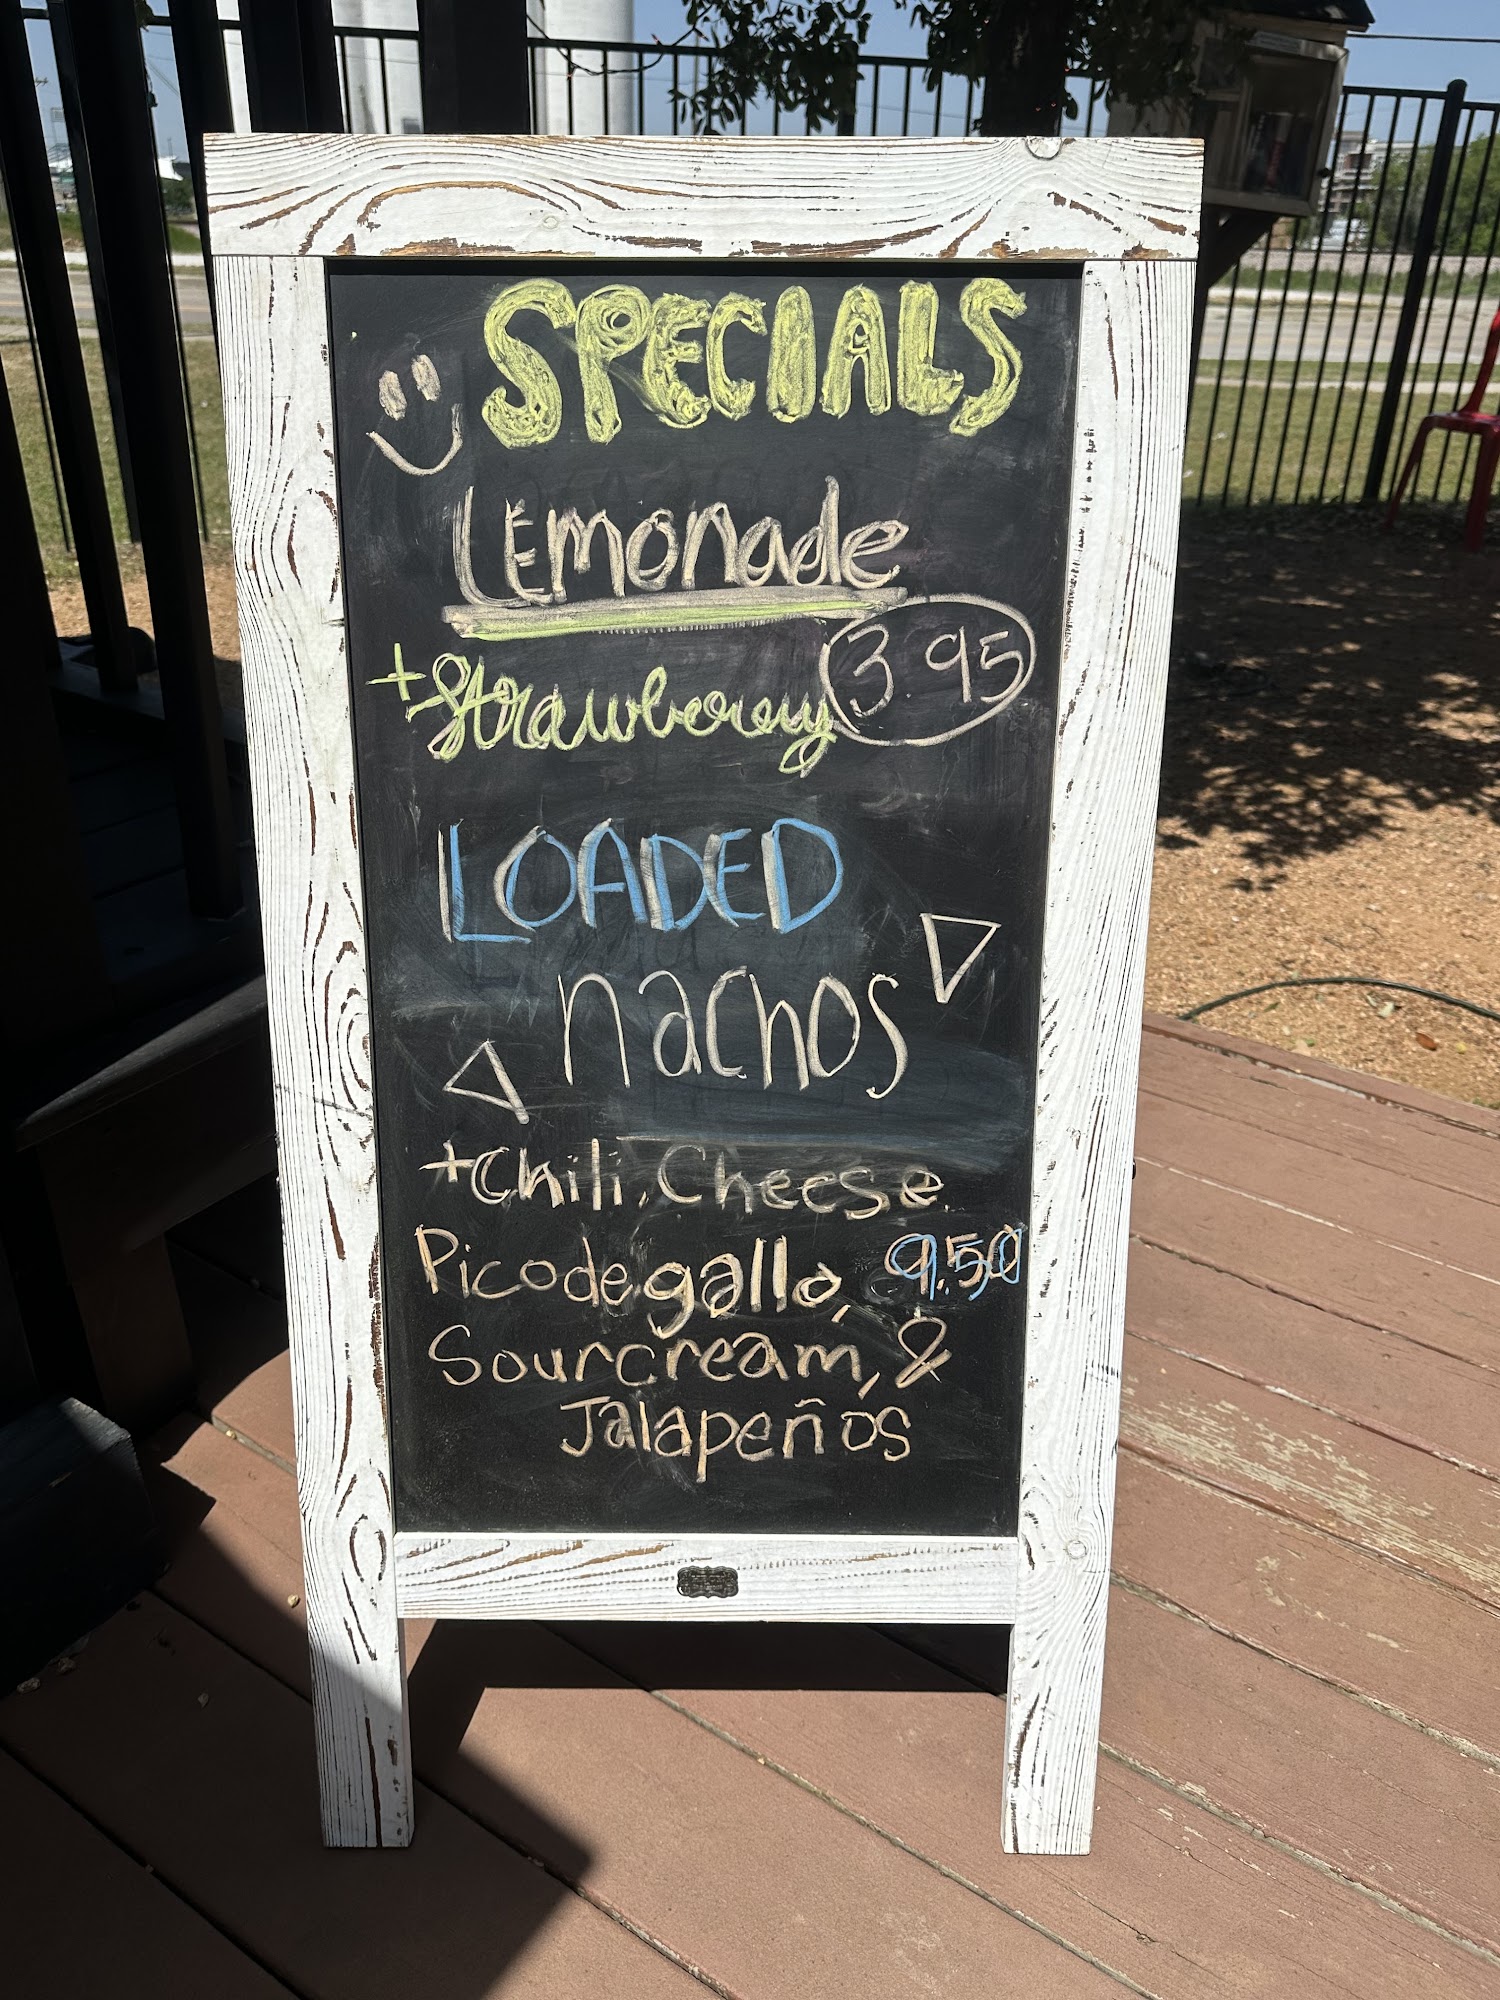 SPECIALS
LEmonade
+ Strawberry 3.95
LOADED
nachos
+Chili, Cheese
Pico de gallo, 9.50
Sour cream, &
Jalapeños